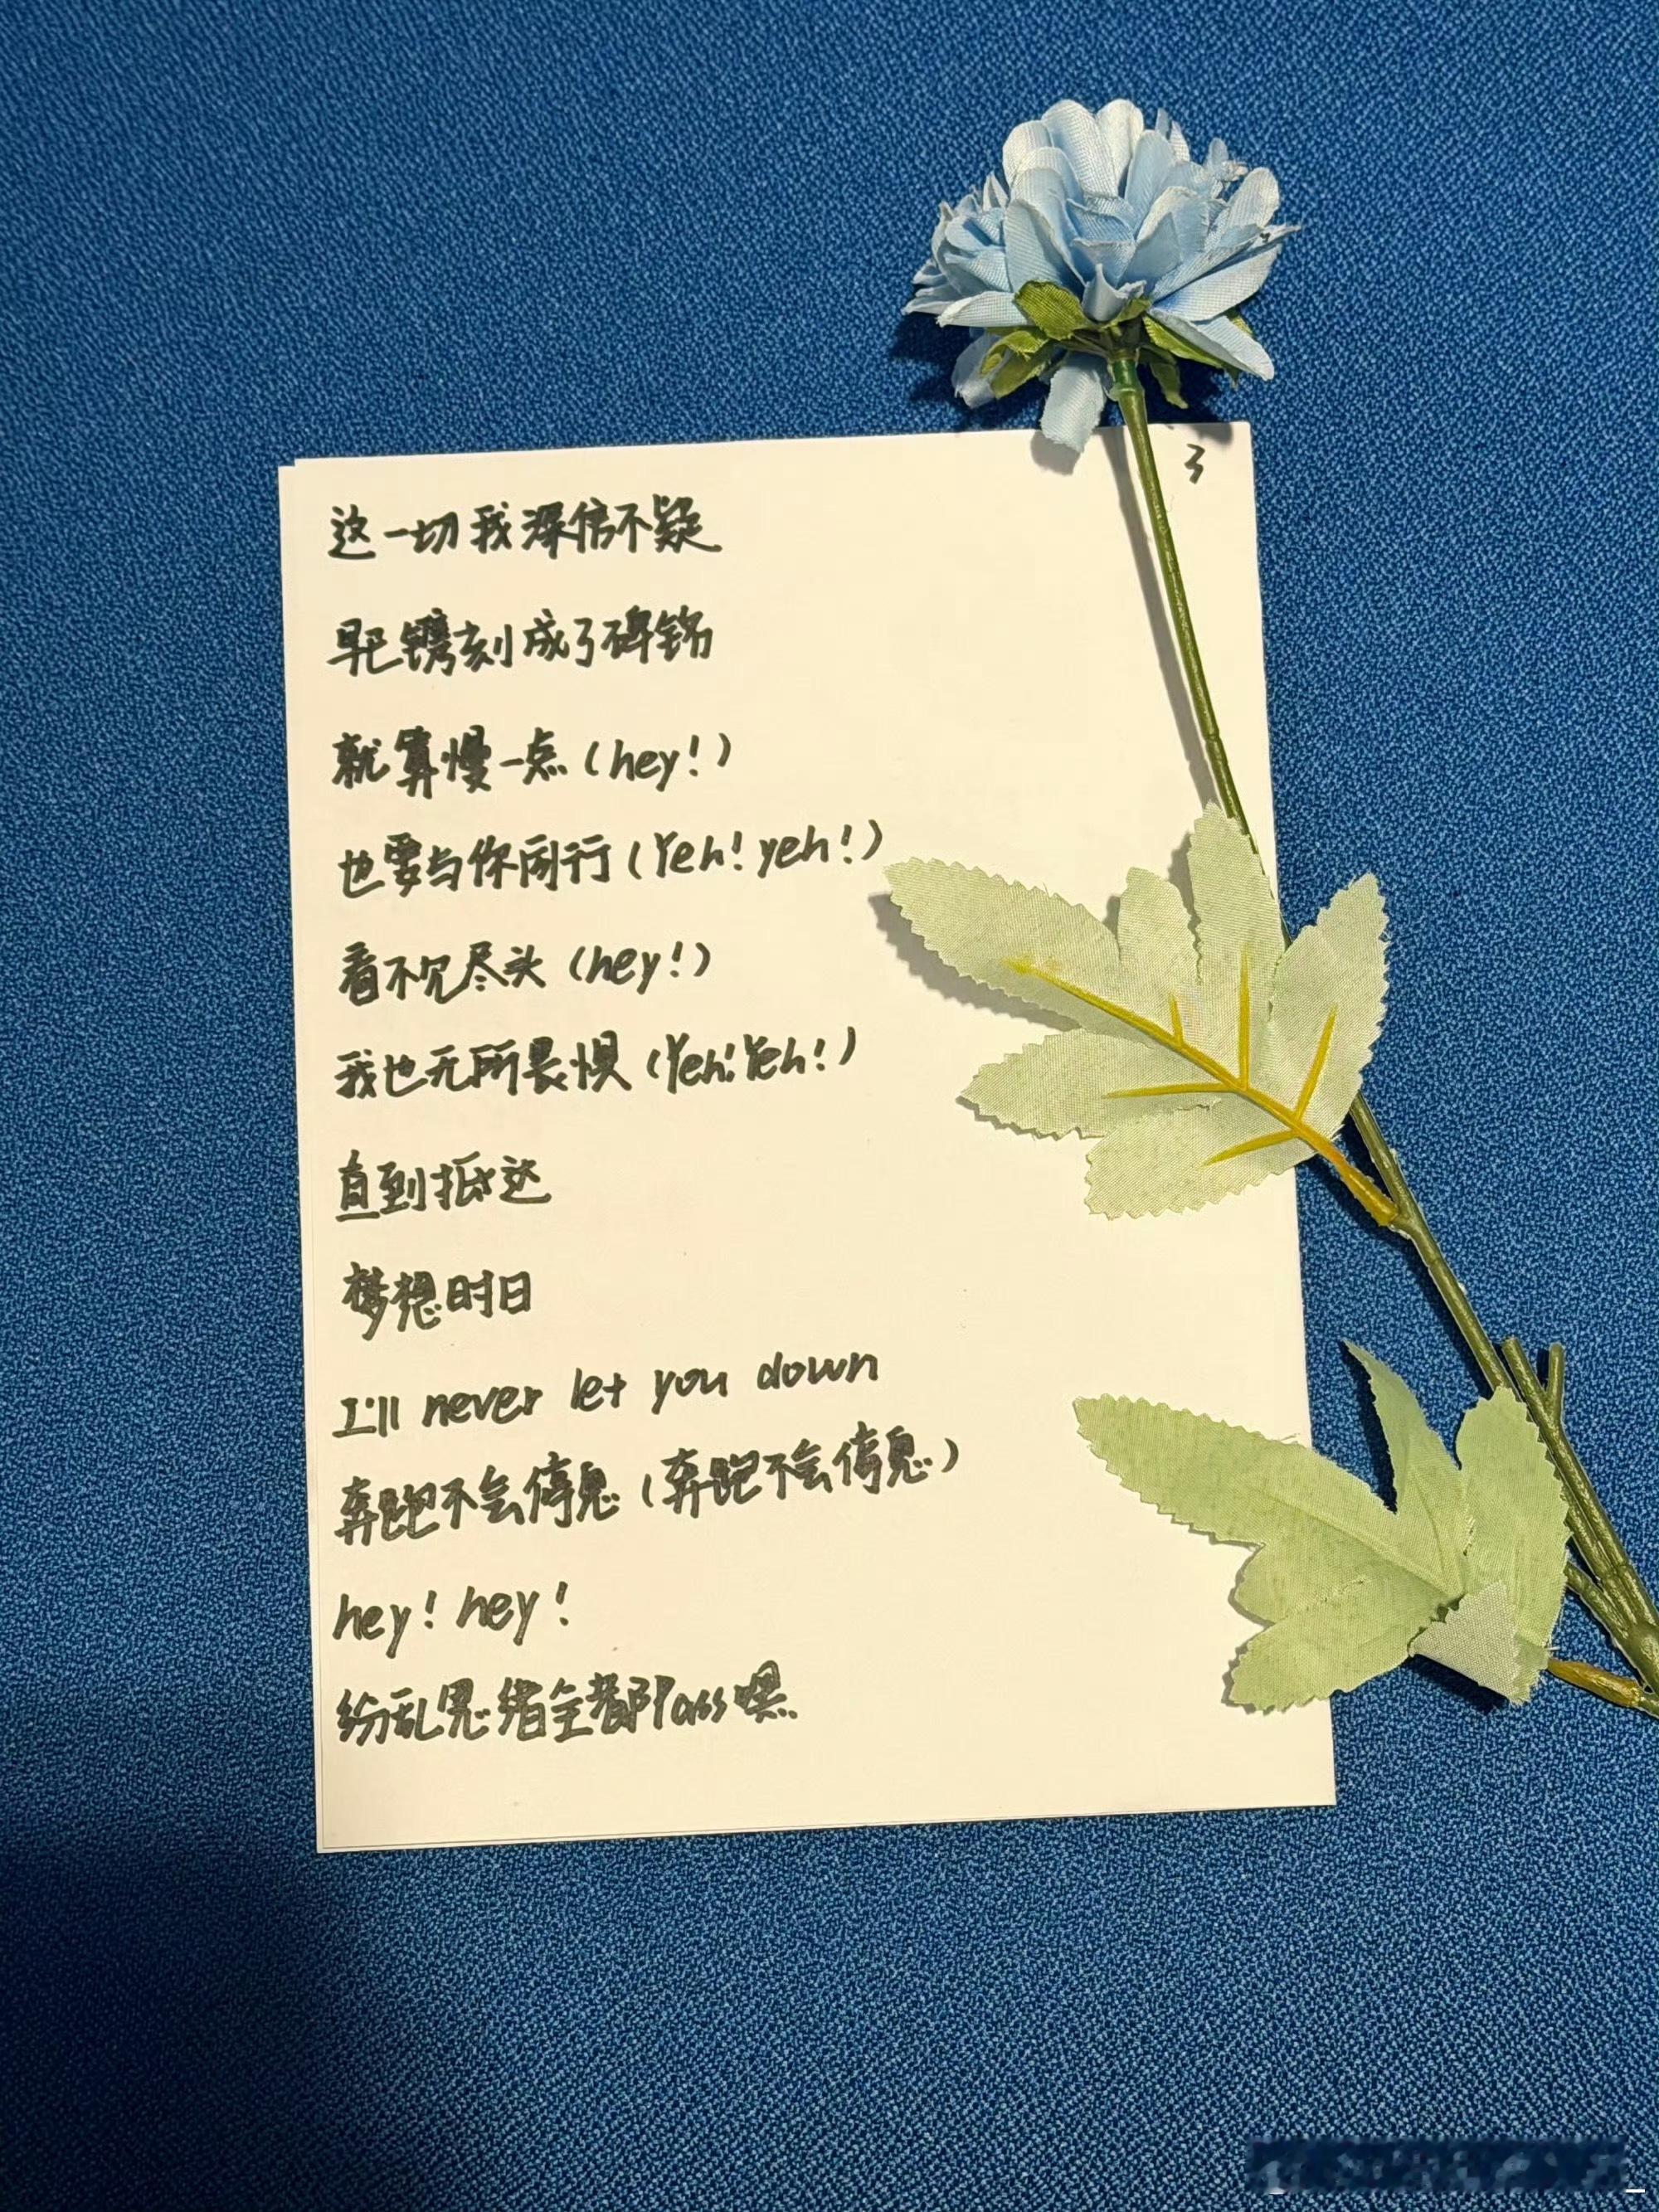 3
这一切我深信不疑
早已镌刻成了碑铭
就算慢一点(hey!)
也要与你同行(Yeh!yeh!)
看不见尽头(hey!)
我也无所畏惧(Yeh!Yeh!)
直到抵达
梦想时日
I'll never let you down
奔跑不会停息(奔跑不会停息)
hey!hey!
纷乱思绪全都Pass嘿